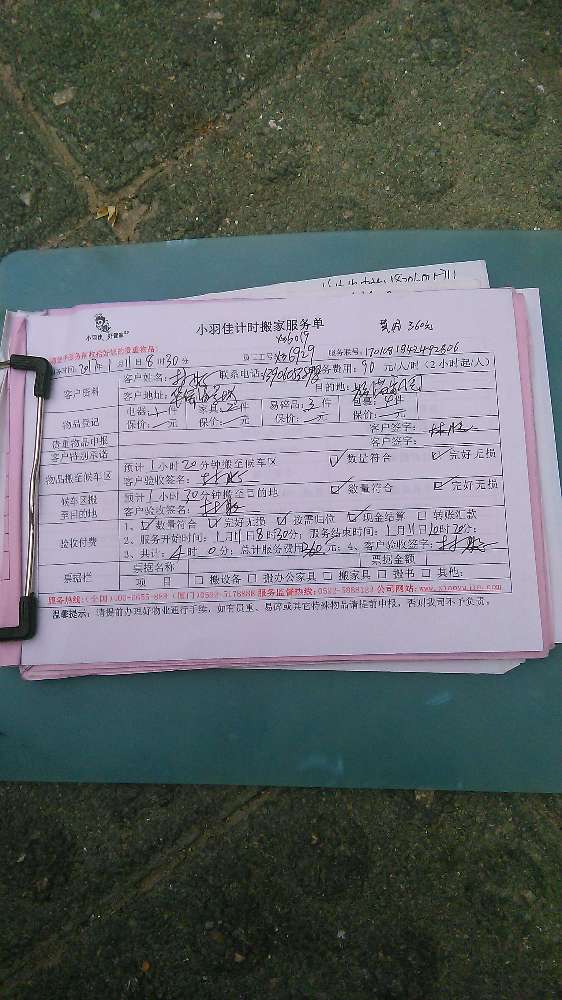 小羽佳计时搬家服务单
费用360元
小羽佳 好管家
xm6019
员工工号xm6929 服务账号:1701081942492506
客户资料
客户姓名: 联系电话: 服务费用:90元/人/时(2小时起/人)
客户地址: 目的地:
物品登记
电器:1件 家具:2件 易碎品:3件 包裹:4件
保价: 元 保价: 元 保价: 元 保价: 元
贵重物品申报 客户签字:
客户特别承诺 客户签字:
物品搬至候车区
预计1小时20分钟搬至候车区 数量符合 完好无损
客户验收签名:
候车区搬至目的地
预计1小时30分钟搬至目的地 数量符合 完好无损
客户验收签名:
验收付费
1、数量符合 完好无损 按需归位 现金结算 转账汇款
2、服务开始时间:1月11日8时30分;服务结束时间:1月11日10时30分;
3、共计:4时0分;总计服务费用360元;4、客户验收签字:
票据栏
票据名称 票据金额
项目 搬设备 搬办公家具 搬家具 搬书 其他:
服务热线:(全国)400-6655-889 (厦门)0592-5178888 服务监督热线: 公司网站:www.xiaoyujia.com
温馨提示:请提前办理好物业进行手续,如有贵重、易碎或其它特殊物品请提前申报,否则我司不予负责。